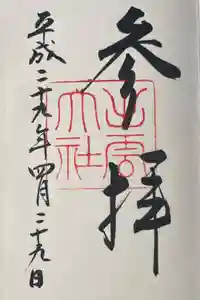 参拝
出雲大社
平成二十九年四月二十九日